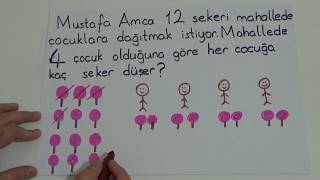 Mustafa Amca 12 şekeri mahallede
çocuklara dağıtmak istiyor. Mahallede
4 çocuk olduğuna göre her çocuğa
kaç şeker düşer?